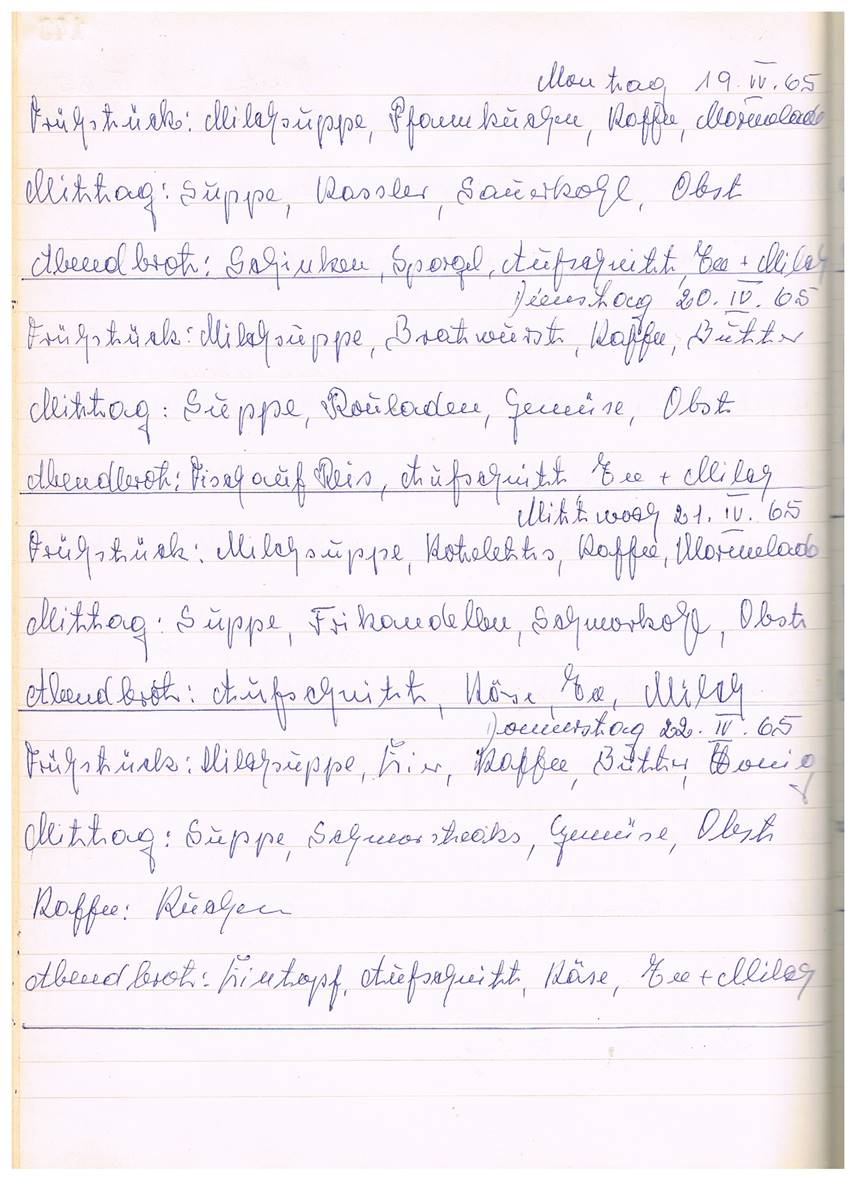 Montag 19.IV.65
Frühstück: Milchsuppe, Pfannkuchen, Kaffee, Marmelade
Mittag: Suppe, Kassler, Sauerkohl, Obst
Abendbrot: Schinken, Spargel, Aufschnitt, Tee + Milch
Dienstag 20.IV.65
Frühstück: Milchsuppe, Bratwurst, Kaffee, Butter
Mittag: Suppe, Rouladen, Gemüse, Obst
Abendbrot: Fisch auf Reis, Aufschnitt Tee + Milch
Mittwoch 21.IV.65
Frühstück: Milchsuppe, Koteletts, Kaffee, Marmelade
Mittag: Suppe, Frikandellen, Schmorkohl, Obst
Abendbrot: Aufschnitt, Käse, Tee, Milch
Donnerstag 22.IV.65
Frühstück: Milchsuppe, Eier, Kaffee, Butter, Honig
Mittag: Suppe, Schmorsteaks, Gemüse, Obst
Kaffee: Kuchen
Abendbrot: Eintopf, Aufschnitt, Käse, Tee + Milch